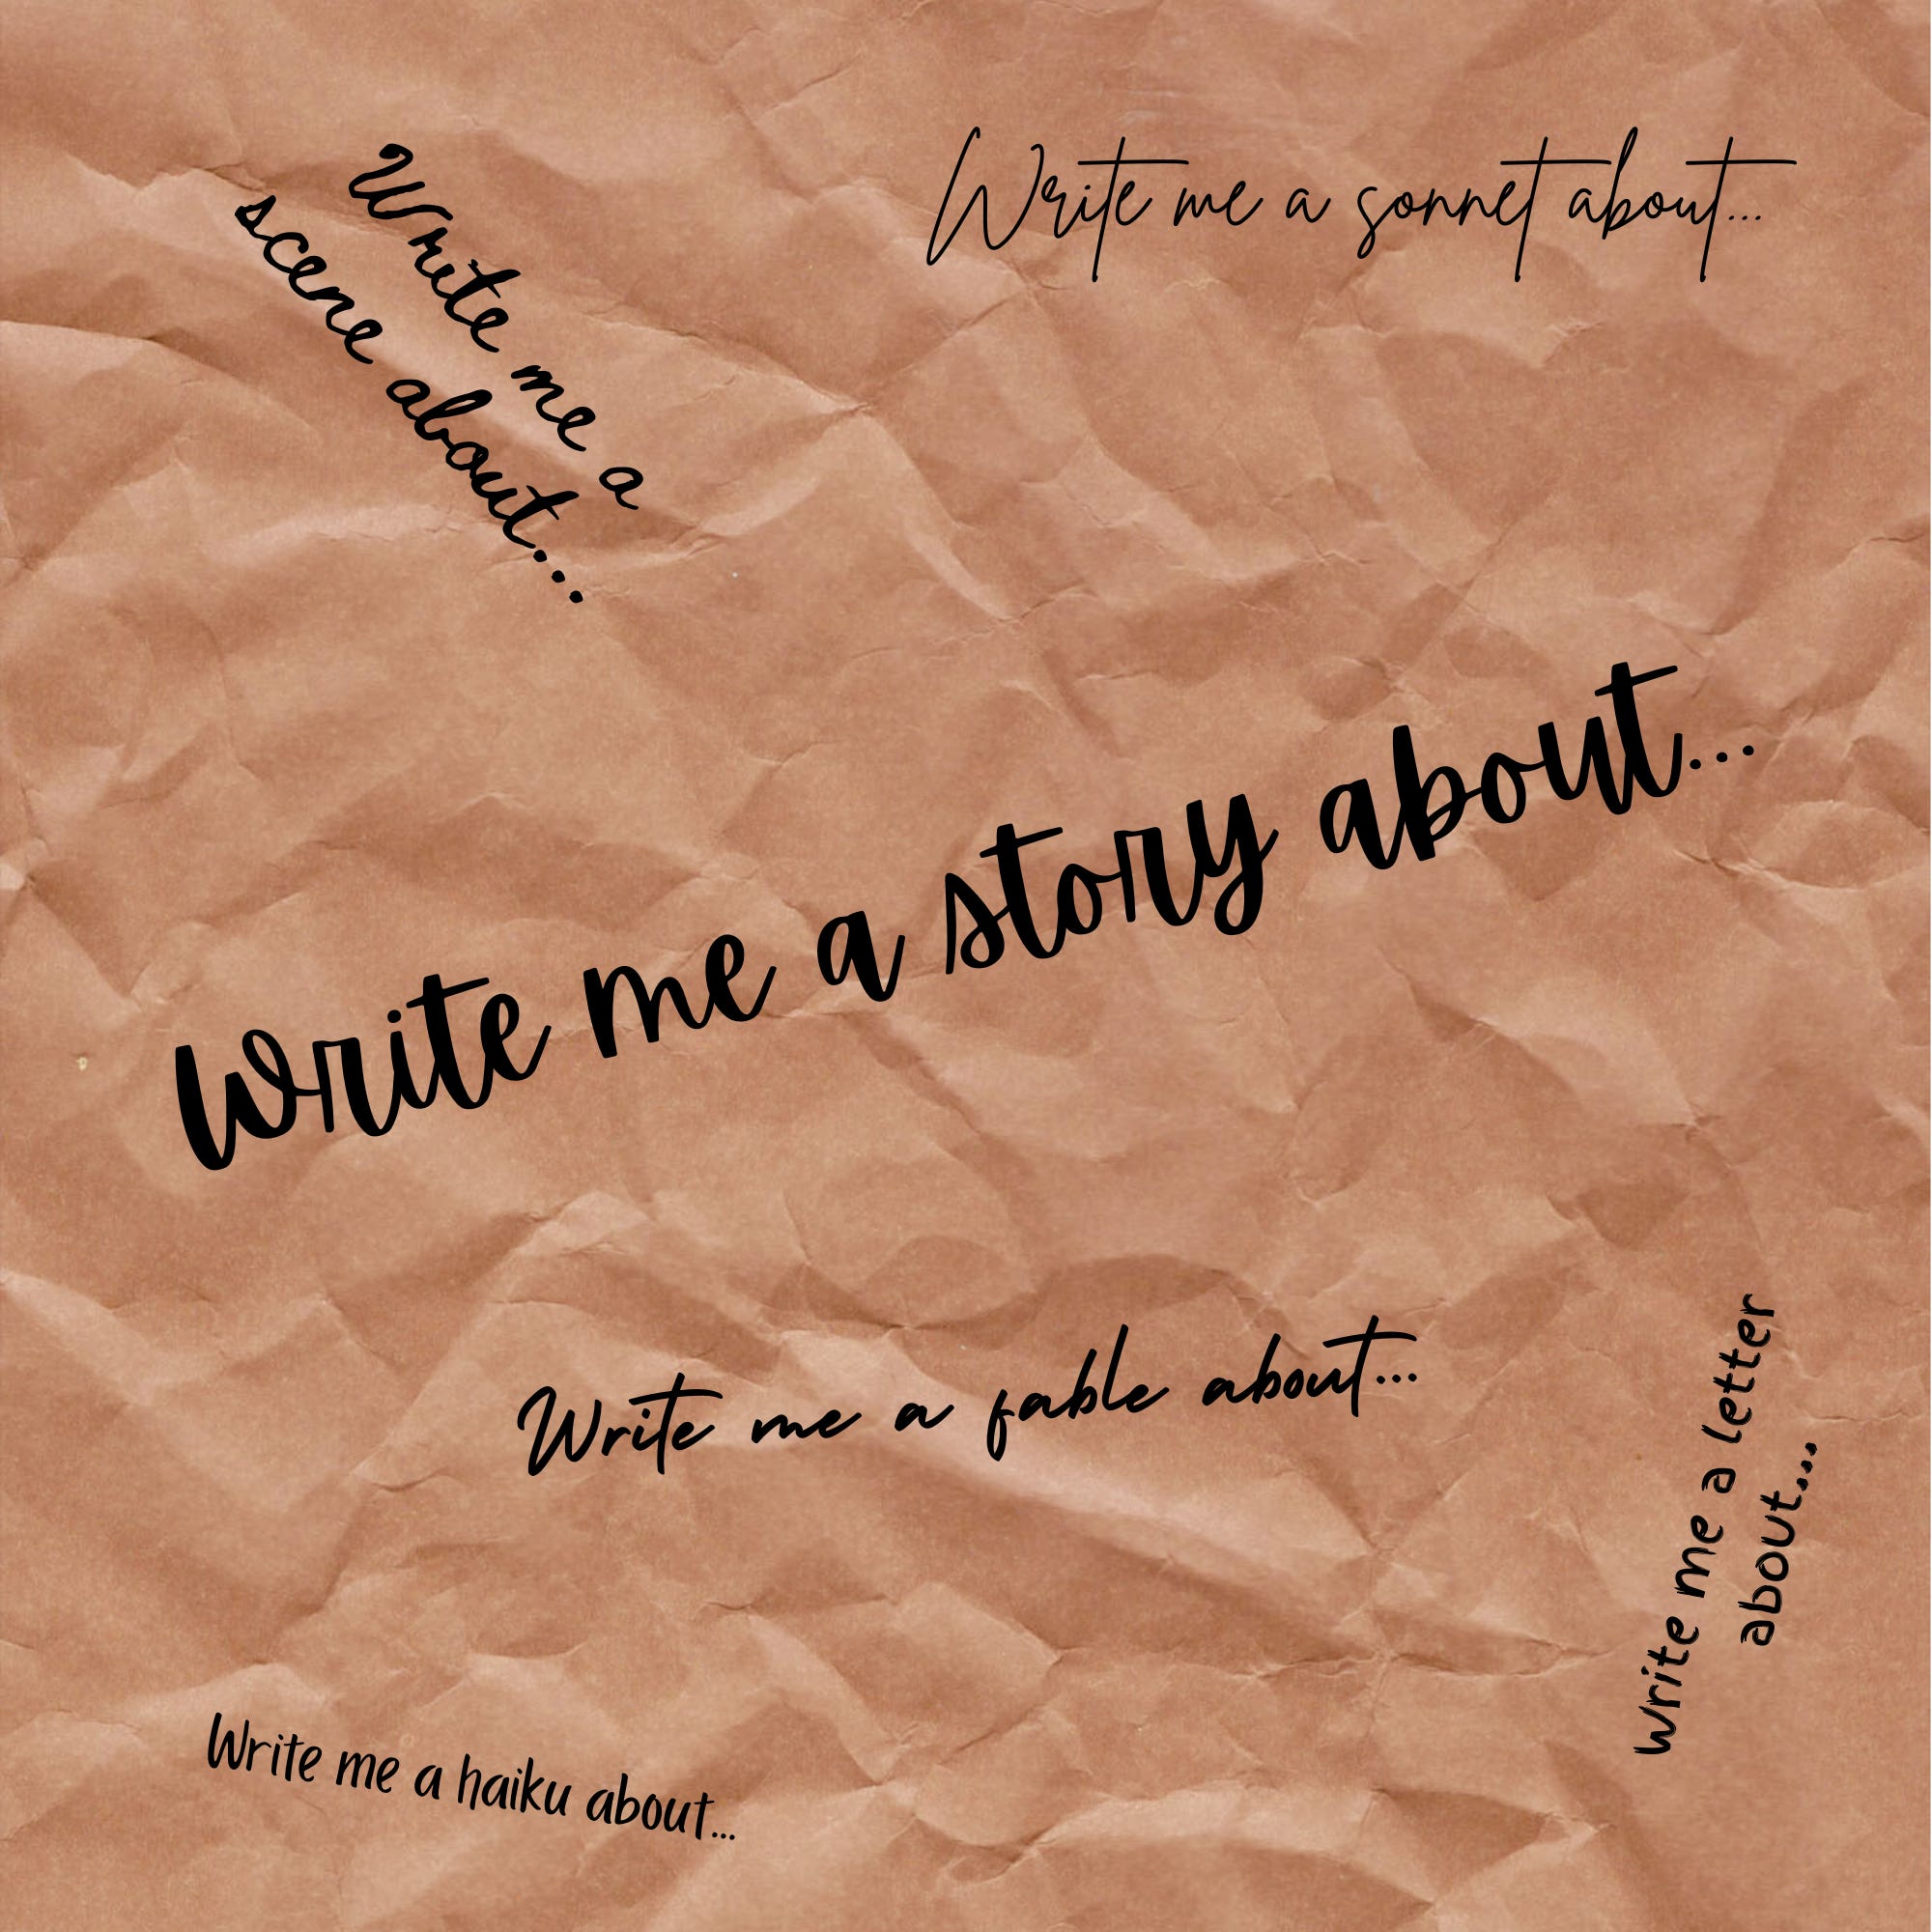 Write me a
scene about...
Write me a sonnet about...
Write me a story about...
Write me a fable about...
Write me a letter
about...
Write me a haiku about...